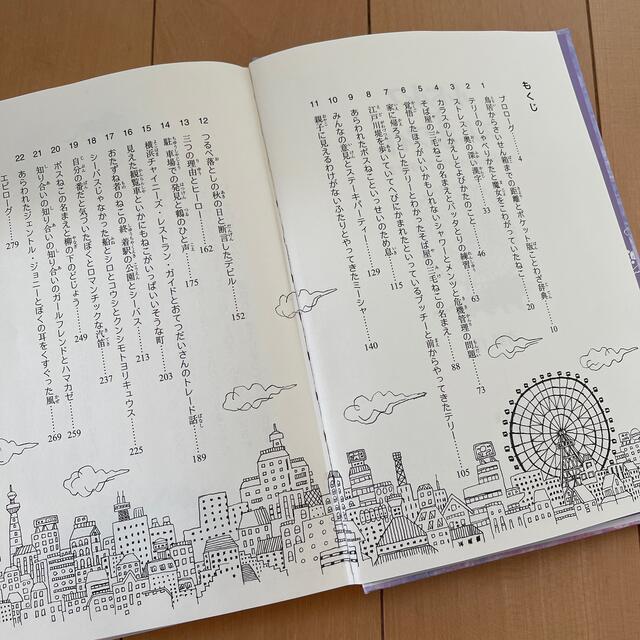 もくじ
プロローグ……4
1 鳥居からさいせん箱までの距離とポケット版ことわざ辞典……10
2 テリーのしゃべりかたと魔女をこわがっていたねこ……20
3 ストレスと奥の深い漢字……33
4 カラスのしかえしとよだれのこと……46
5 そば屋の三毛ねこの名まえとバッタとりの練習……63
6 覚悟したほうがいいかもしれないシャワーとメンツと危機管理の問題……73
7 家に帰ろうとしたテリーとわかったそば屋の三毛ねこの名まえ……88
8 江戸川堤を歩いていてへびにかまれたといっているブッチーと前からやってきたテリー……105
9 あらわれたボスねこといっせいのため息……115
10 みんなの意見とステーキパーティー……129
11 親子に見えるわけがないふたりとやってきたミーシャ……140
12 つるべ落としの秋の日と断言したデビル……152
13 三つの理由とヒーロー……162
14 駐車場での発見と鶴のひと声……175
15 横浜チャイニーズ・レストラン・ガイドとおてつだいさんのトレード話……189
16 見えた観覧車といかにもねこがいっぱいいそうな町……203
17 おたずね者のねこの終着駅の公園とシーバス……213
18 シーバスじゃなかった船とシロとコウツとクンシモトヨリキュウス……225
19 自分の番だと気づいたぼくとロマンチックな汽笛……237
20 ボスねこの名まえと柳の下のどじょう……249
21 知り合いの知り合いの知り合いのガールフレンドとハマカゼ……259
22 あらわれたジェントル・ジョニーとぼくの耳をくすぐった風……269
エピローグ……279